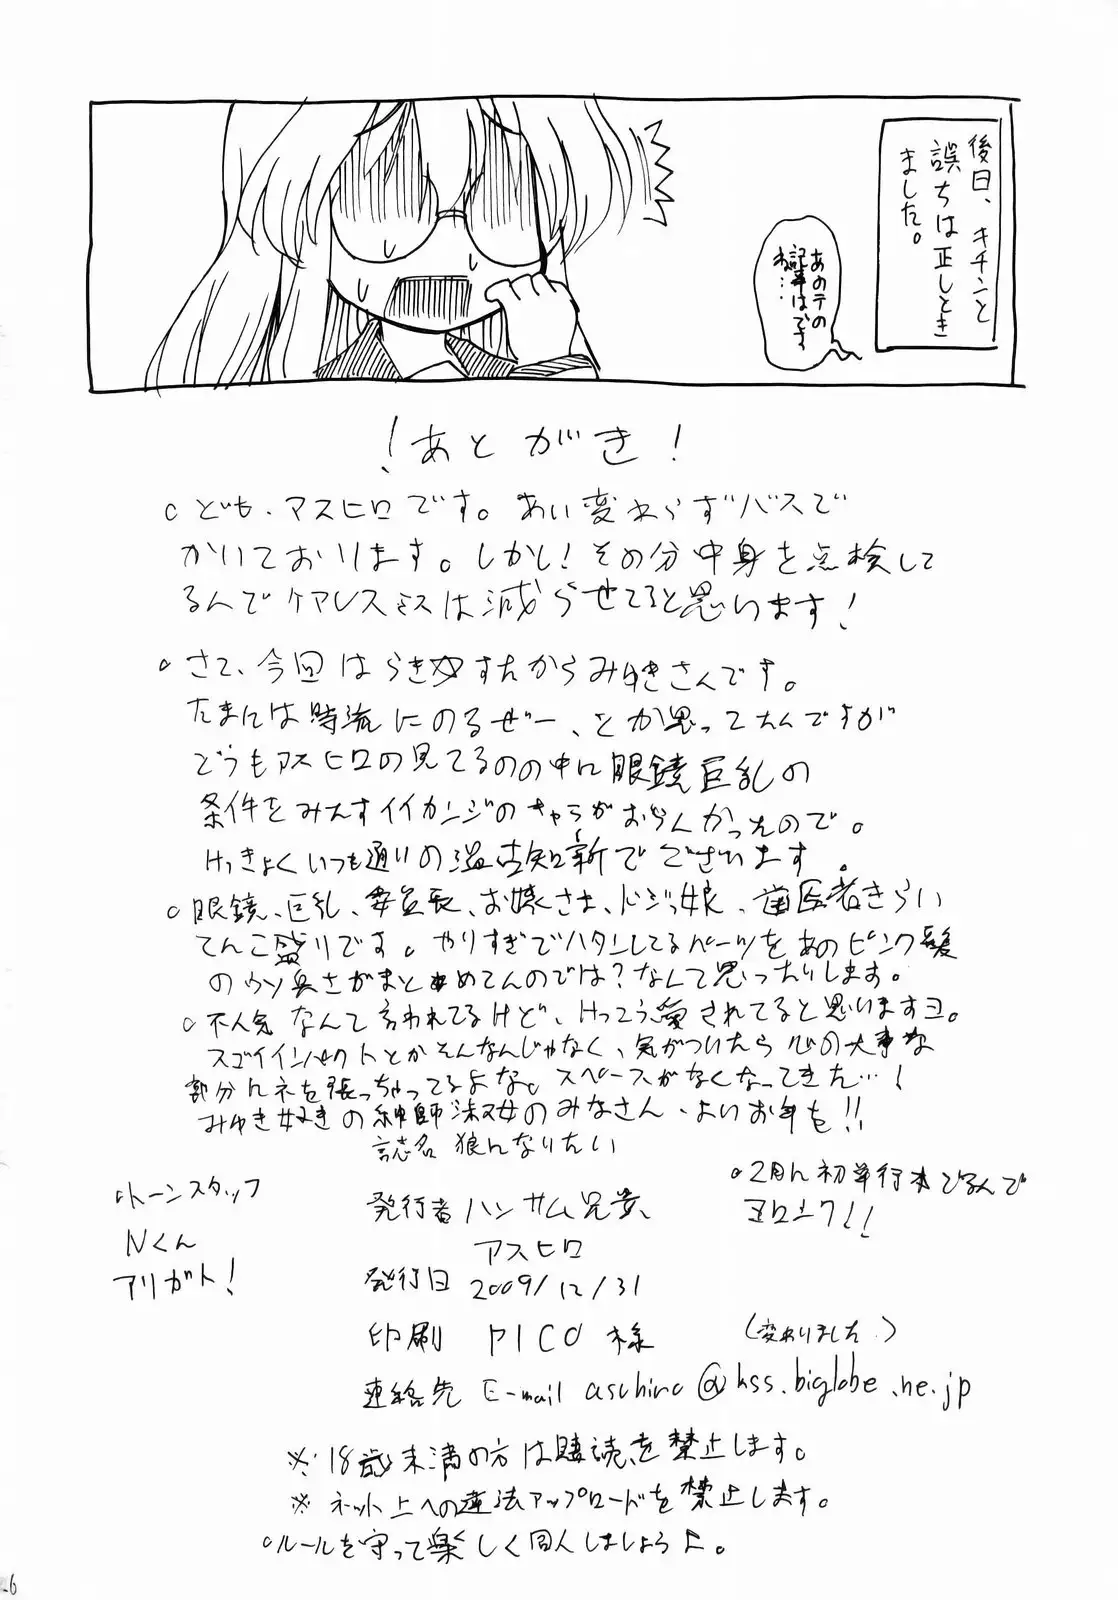 後日、キチンと
誤ちは正しとき
ました。
あのテの
記事はです
ね…
!あとがき!
○ども、アスヒロです。あい変わらずバスで
かいております。しかし!その分中身を点検して
るんでケアレスミスは減らせてると思います!
○さて、今回はらき☆すたからみゆきさんです。
たまには時流にのるぜー、とか思ってたんですが
どうもアスヒロの見てるのの中に眼鏡巨乳の
条件をみたすイイカンジのキャラがおらんかったので。
けっきょくいつも通りの温古知新でございます。
○眼鏡、巨乳、委員長、お嬢さま、ドジっ娘、歯医者きらい
てんこ盛りです。やりすぎでハタンしてるパーツをあのピンク髪
のウソ臭さがまとめてんのでは?なんて思ったりします。
○不人気なんて言われてるけど、けっこう愛されてると思いますヨ。
スゴイインパクトとかそんなんじゃなく、気がついたら心の大事な
部分にネを張っちゃってるよな。スペースがなくなってきた…!
みゆき好きの紳師淑女のみなさん、よいお年を!!
誌名 狼になりたい
○トーンスタッフ
Nくん
アリガト!
発行者 ハンサム兄貴、
アスヒロ
○2月に初単行本でるんで
ヨロシク!!
発行日 2009/12/31
印刷 PICO 様
(変わりました。)
連絡先 E-mail asuhiro@kss.biglobe.ne.jp
※18歳未満の方は購読を禁止します。
※ネット上への違法アップロードを禁止します。
○ルールを守って楽しく同人しましょうよ。
6